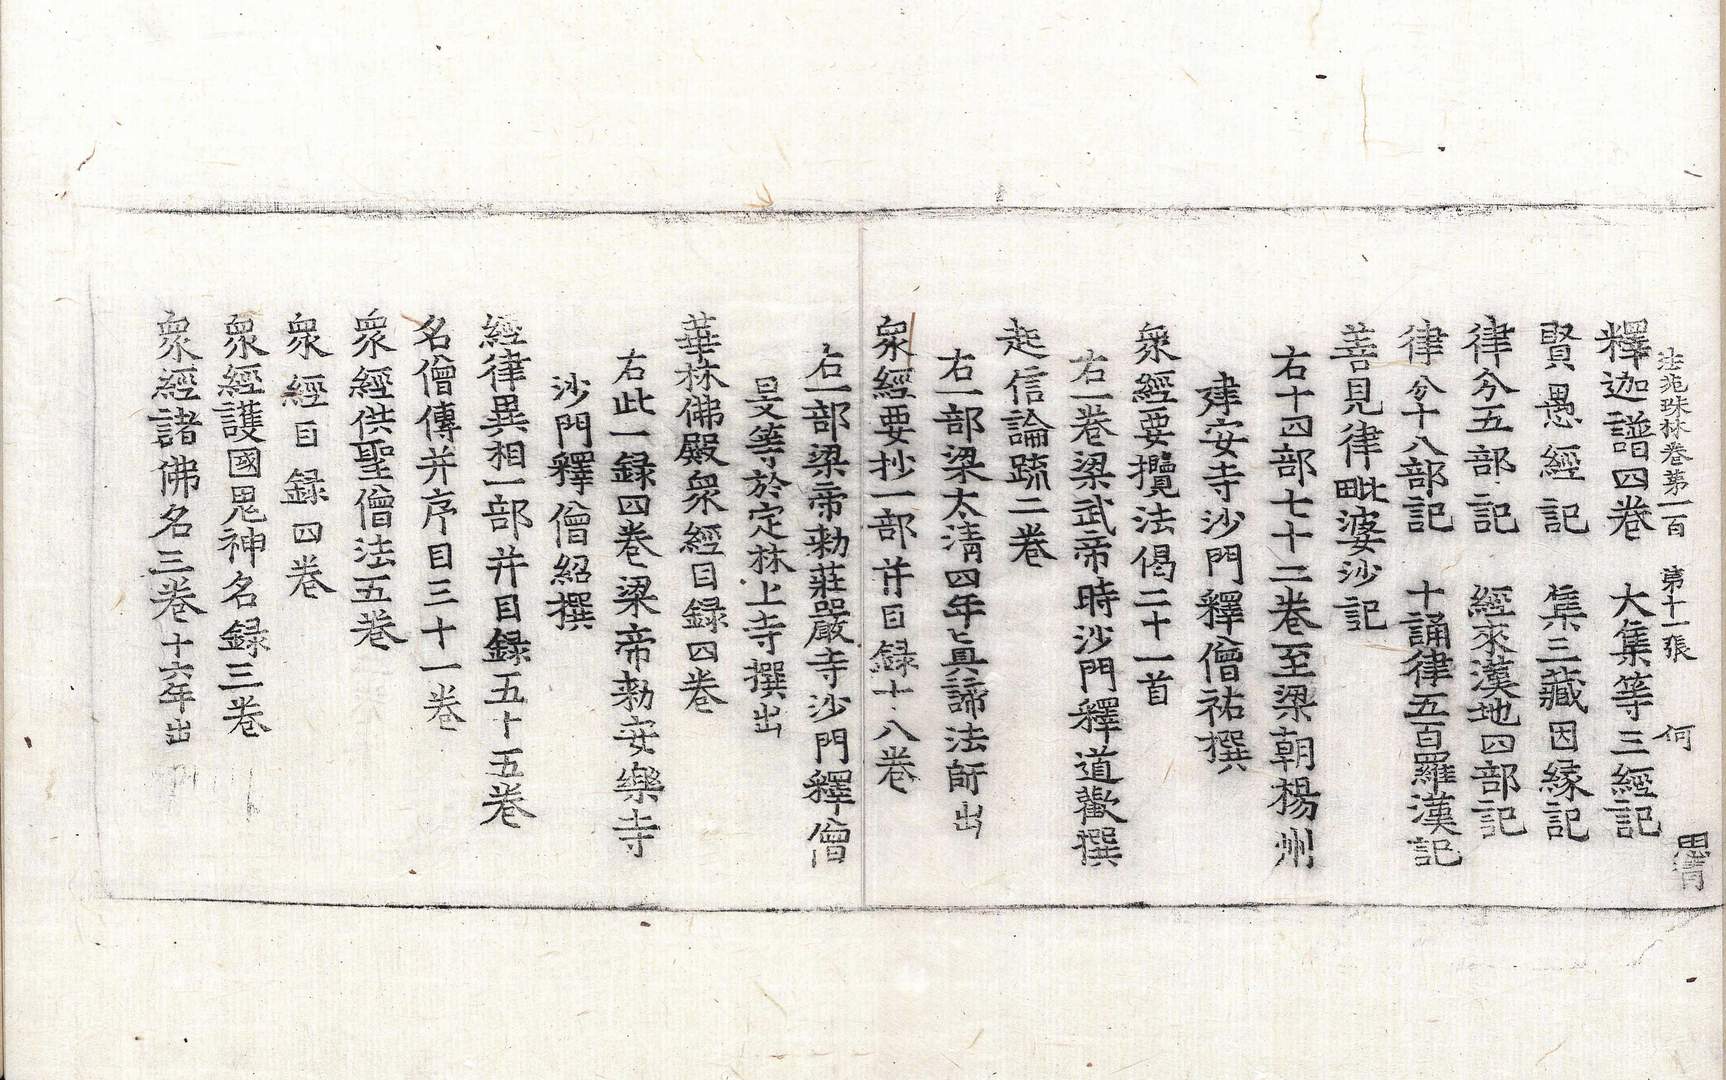 法苑珠林卷第一百　第十一張　何
思清
釋迦譜四卷　大集等三經記
賢愚經記　集三藏因緣記
律分五部記　經來漢地四部記
律分十八部記　十誦律五百羅漢記
善見律毗婆沙記
右十四部七十二卷至梁朝楊州
建安寺沙門釋僧祐撰
衆經要攬法偈二十一首
右一卷梁武帝時沙門釋道歡撰
起信論䟽二卷
右一部梁太清四年真諦法師出
衆經要抄一部并目録十八卷
右一部梁帝勑莊嚴寺沙門釋僧
旻等於定林上寺撰出
華林佛殿衆經目録四卷
右此一録四卷梁帝勑安樂寺
沙門釋僧紹撰
經律異相一部并目録五十五卷
名僧傳并序目三十一卷
衆經供聖僧法五卷
衆經目録四卷
衆經護國鬼神名録三卷
衆經諸佛名三卷十六年出